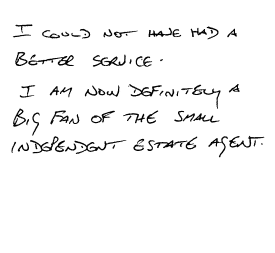 I COULD NOT HAVE HAD A
BETTER SERVICE.
I AM NOW DEFINITELY A
BIG FAN OF THE SMALL
INDEPENDENT ESTATE AGENT.